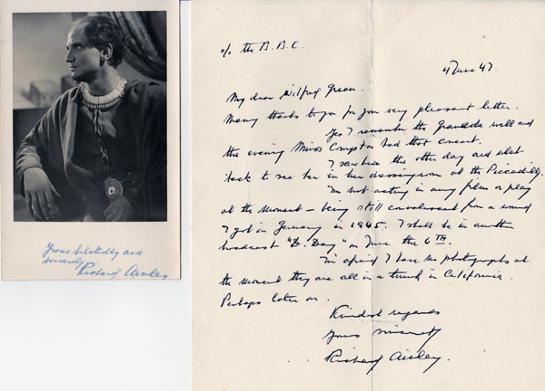 c/o the B.B.C.
4 June 47.
My dear Wilfred Green.
Many thanks to you for your very pleasant letter.
Yes I remember the well and
the evening Miss Compton had that concert.
I saw her the other day and went
back to see her in her dressing room at the Piccadilly.
I'm not acting in any film or play
at the moment – being still convalescent from a wound
I got in January in 1945. I shall be in another
broadcast "D. Day" on June the 6TH.
I'm afraid I have no photographs at
the moment they are all in a trunk in California.
Perhaps later on.
Kindest regards
Yours sincerely
Richard Ainley.
Yours belatedly and
sincerely
Richard Ainley